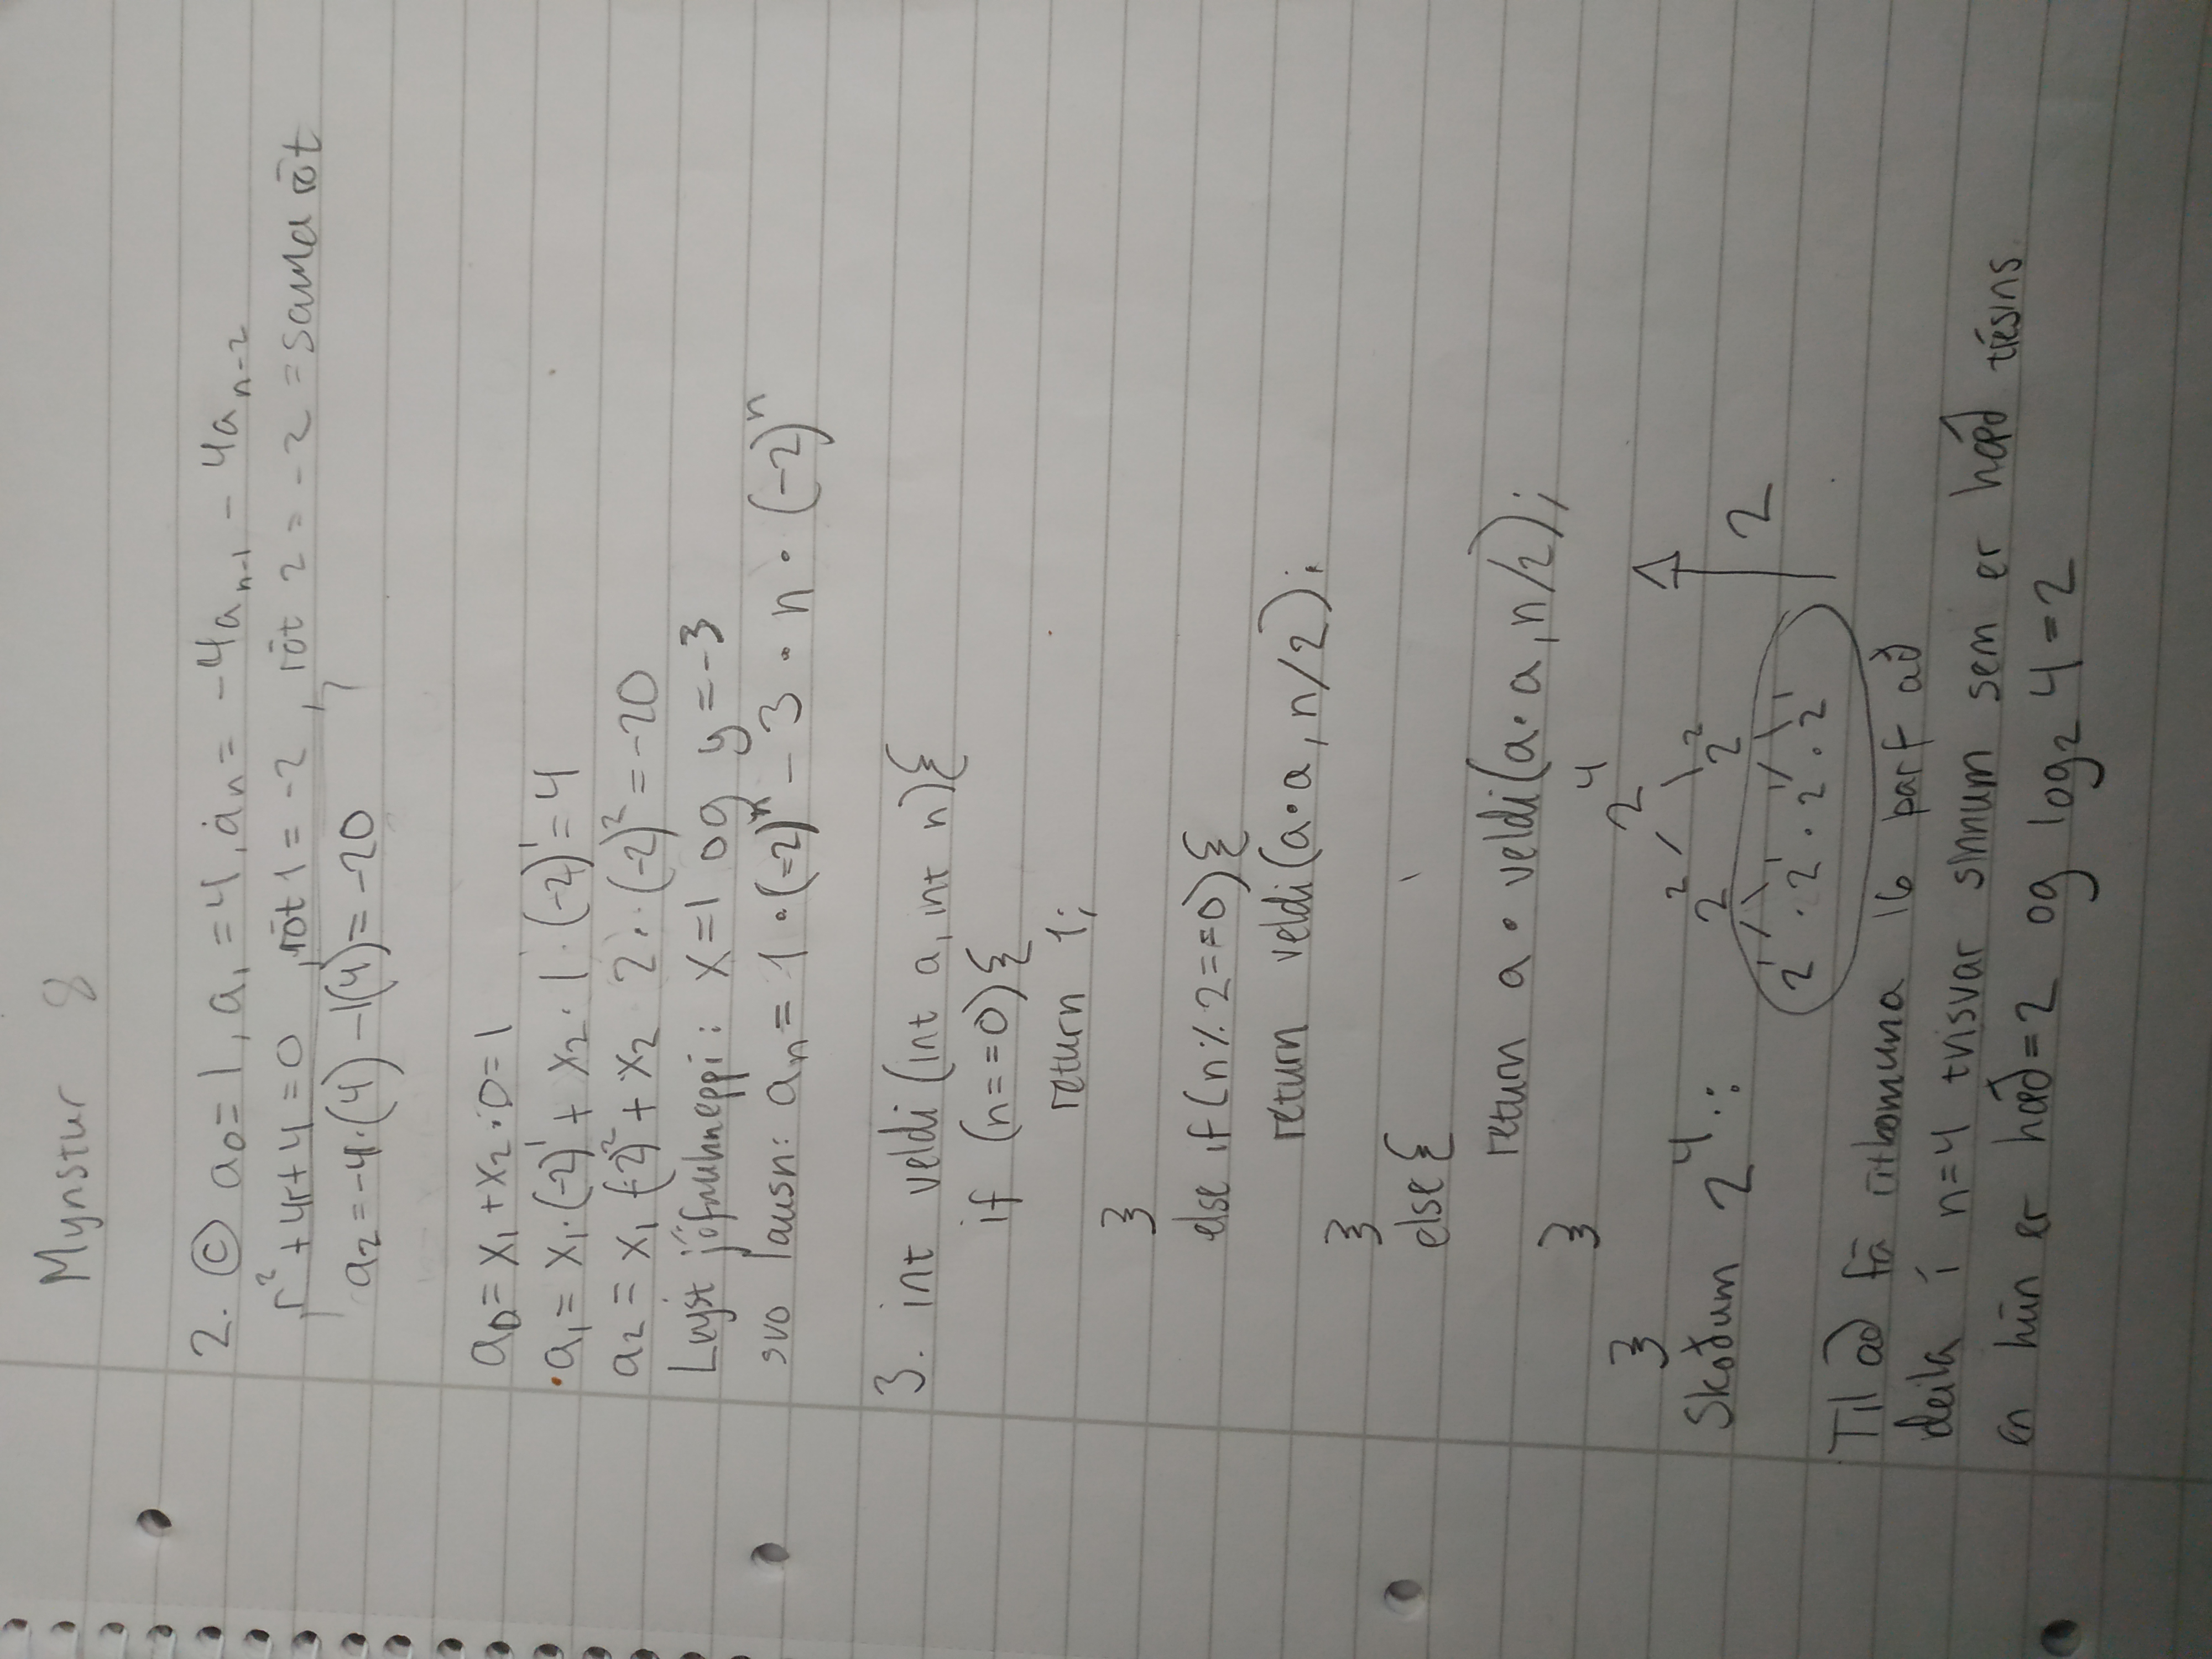 Mynstur 8
2. ⓒ a₀ = 1, a₁ = 4, aₙ = -4aₙ₋₁ - 4aₙ₋₂
r² + 4r + 4 = 0, rót 1 = -2, rót 2 = -2 = sama rót
a₂ = -4·(4) - 1(4) = -20
a₀ = x₁ + x₂·0 = 1
a₁ = x₁·(-2)¹ + x₂·1·(-2)¹ = 4
a₂ = x₁(-2)² + x₂ 2·(-2)² = -20
Leyst jöfnuhneppi: x = 1 og y = -3
svo lausn: aₙ = 1·(-2)ⁿ - 3·n·(-2)ⁿ
3. int veldi (int a, int n){
if (n==0){
return 1;
}
else if (n % 2 == 0){
return veldi(a·a, n/2);
}
else{
return a · veldi(a·a, n/2);
}
}
2⁴
2² 2²
Skoðum 2⁴: 2
2¹ · 2¹ · 2¹ · 2¹
Til að fá útkomuna 16 þarf að
deila í n=4 tvisvar sinnum sem er hæð trésins
en hún er hæð=2 og log₂ 4 = 2